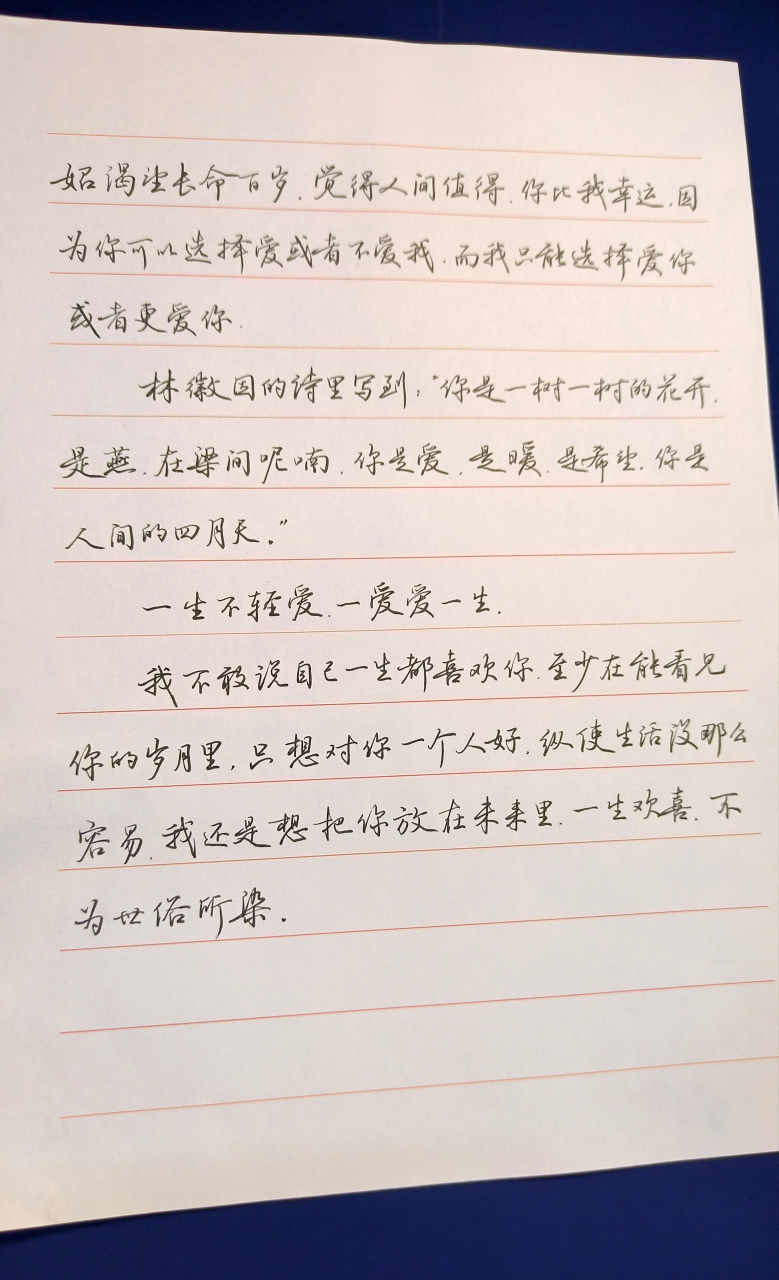 始渴望长命百岁，觉得人间值得，你比我幸运，因
为你可以选择爱或者不爱我，而我只能选择爱你
或者更爱你。
林徽因的诗里写到：“你是一树一树的花开，
是燕，在梁间呢喃，你是爱，是暖，是希望，你是
人间的四月天。”
一生不轻爱，一爱爱一生。
我不敢说自己一生都喜欢你，至少在能看见
你的岁月里，只想对你一个人好，纵使生活没那么
容易，我还是想把你放在未来里，一生欢喜，不
为世俗所染。